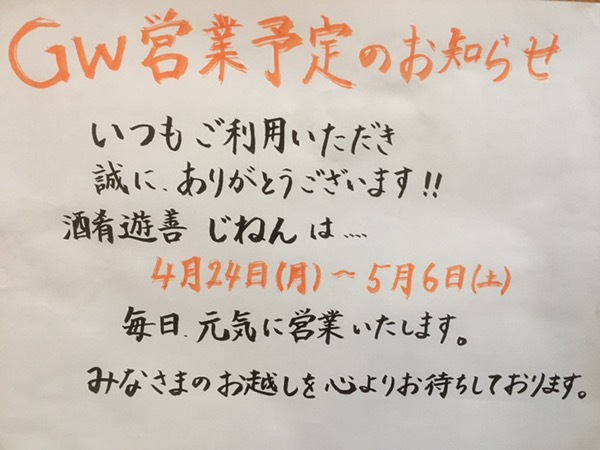 GW営業予定のお知らせ
いつもご利用いただき
誠に、ありがとうございます!!
酒肴遊善 じねんは....
4月24日(月)～5月6日(土)
毎日、元気に営業いたします。
みなさまのお越しを心よりお待ちしております。